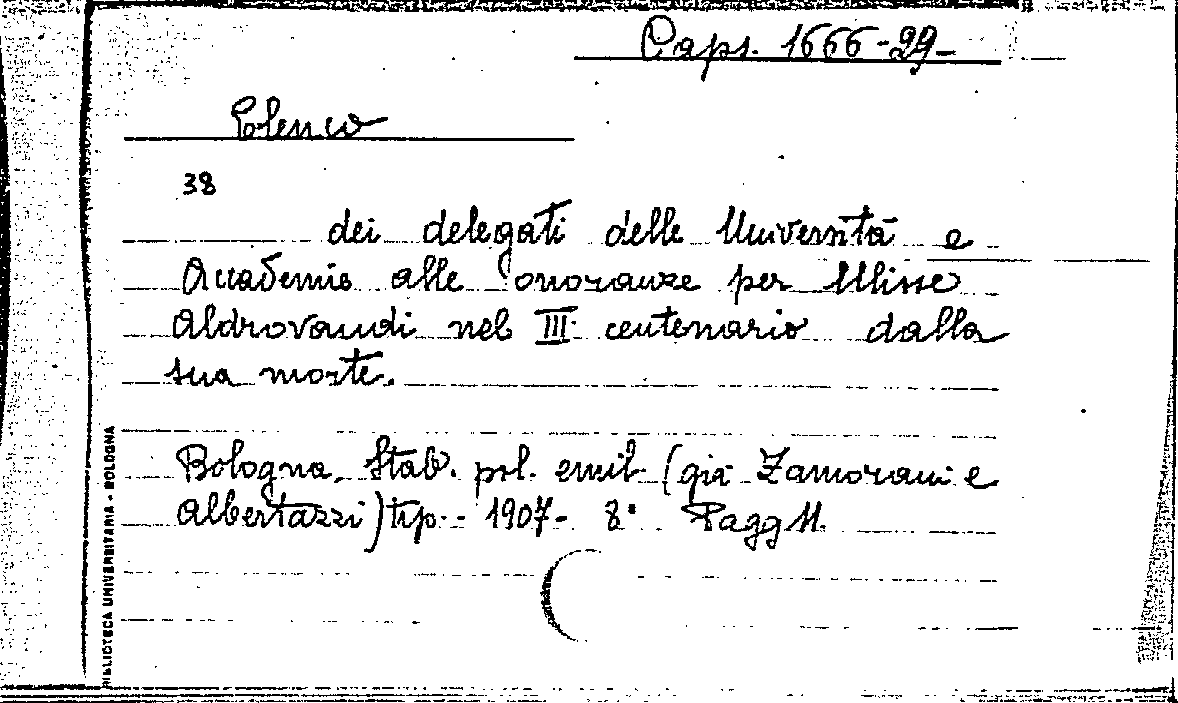 Caps. 1666-29-
Elenco
38
dei delegati delle Università e
Accademie alle onoranze per Ulisse
Aldrovandi nel III. centenario dalla
sua morte.
Bologna, Stab. pol. emil. (già Zamorani e
Albertazzi) tip. - 1907 - 8° Pagg 11.
BIBLIOTECA UNIVERSITARIA - BOLOGNA